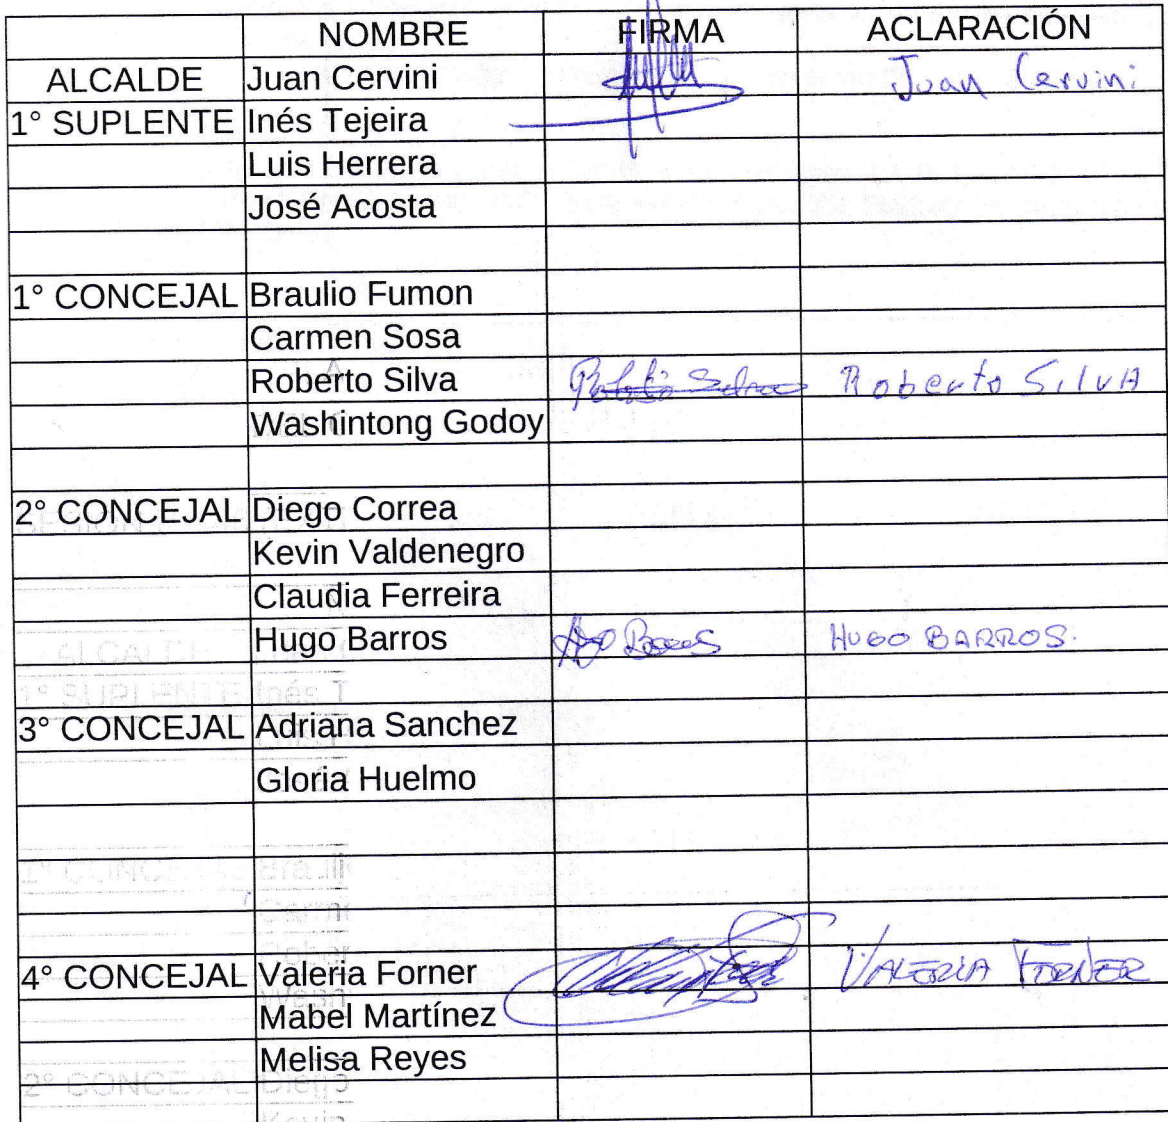 NOMBRE FIRMA ACLARACIÓN
ALCALDE Juan Cervini Juan Cervini
1° SUPLENTE Inés Tejeira
Luis Herrera
José Acosta
1° CONCEJAL Braulio Fumon
Carmen Sosa
Roberto Silva Roberto Silva Roberto SilvA
Washintong Godoy
2° CONCEJAL Diego Correa
Kevin Valdenegro
Claudia Ferreira
Hugo Barros HUGO BARROS.
3° CONCEJAL Adriana Sanchez
Gloria Huelmo
4° CONCEJAL Valeria Forner VALERIA FORNER
Mabel Martínez
Melisa Reyes